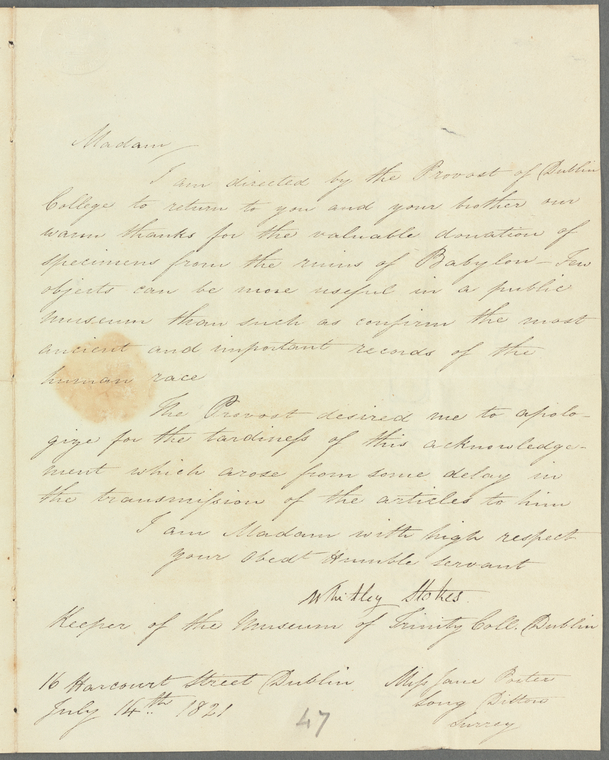 Madam
I am directed by the Provost of Dublin
College to return to you and your brother our
warm thanks for the valuable donation of
specimens from the ruins of Babylon – Few
objects can be more useful in a public
museum than such as confirm the most
ancient and important records of the
human race
The Provost desired me to apolo-
gize for the tardiness of this acknowledge-
ment which arose from some delay in
the transmission of the articles to him
I am Madam with high respect
your Obedt Humble servant
Whitley Stokes
Keeper of the Museum of Trinity Coll. Dublin
16 Harcourt Street Dublin
July 14th 1821
Miss Jane Porter
Long Ditton
Surrey
47